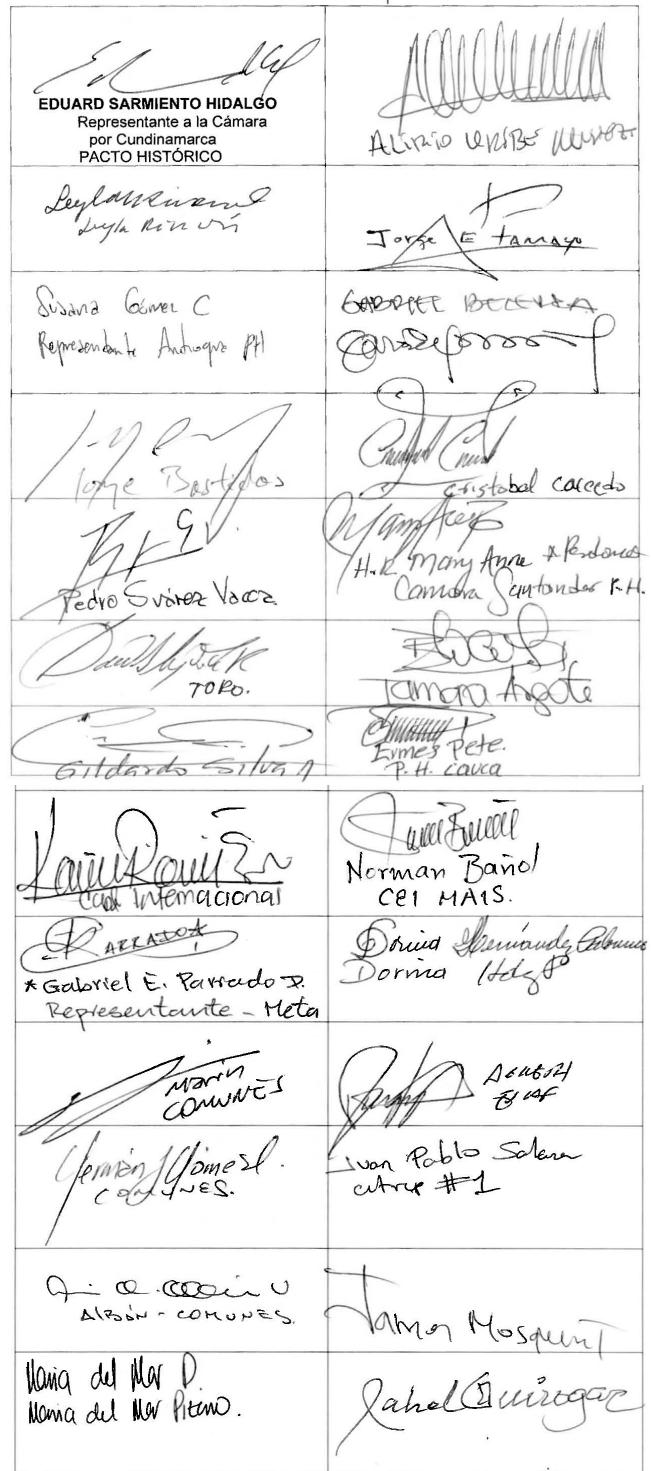 EDUARD SARMIENTO HIDALGO
Representante a la Cámara
por Cundinamarca
PACTO HISTÓRICO
ALIRIO URIBE MUÑOZ
Leyla Rincón
Jorge E Tamayo
Susana Gómez C
Representante Antioquia PH
GABRIEL BECERRA
Jorge Bastidas
Cristobal Caicedo
Pedro Suárez Vacca
H.R. Mary Anne
Camara Santander P.H.
TORO.
Tamara Argote
Gildardo Silva
Ermes Pete.
P.H. Cauca
Internacional
Norman Bañol
CEI MAIS.
PARRADO
* Gabriel E. Parrado D.
Representante - Meta
Dorina Hernández Palomino
Dorina Hdez P
Marín
COMUNES
Germán Gómez
COMUNES.
Juan Pablo Salazar
citrep #1
Albán - COMUNES
Maria del Mar P.
Maria del Mar Pizarro.
Jahel Quiroga